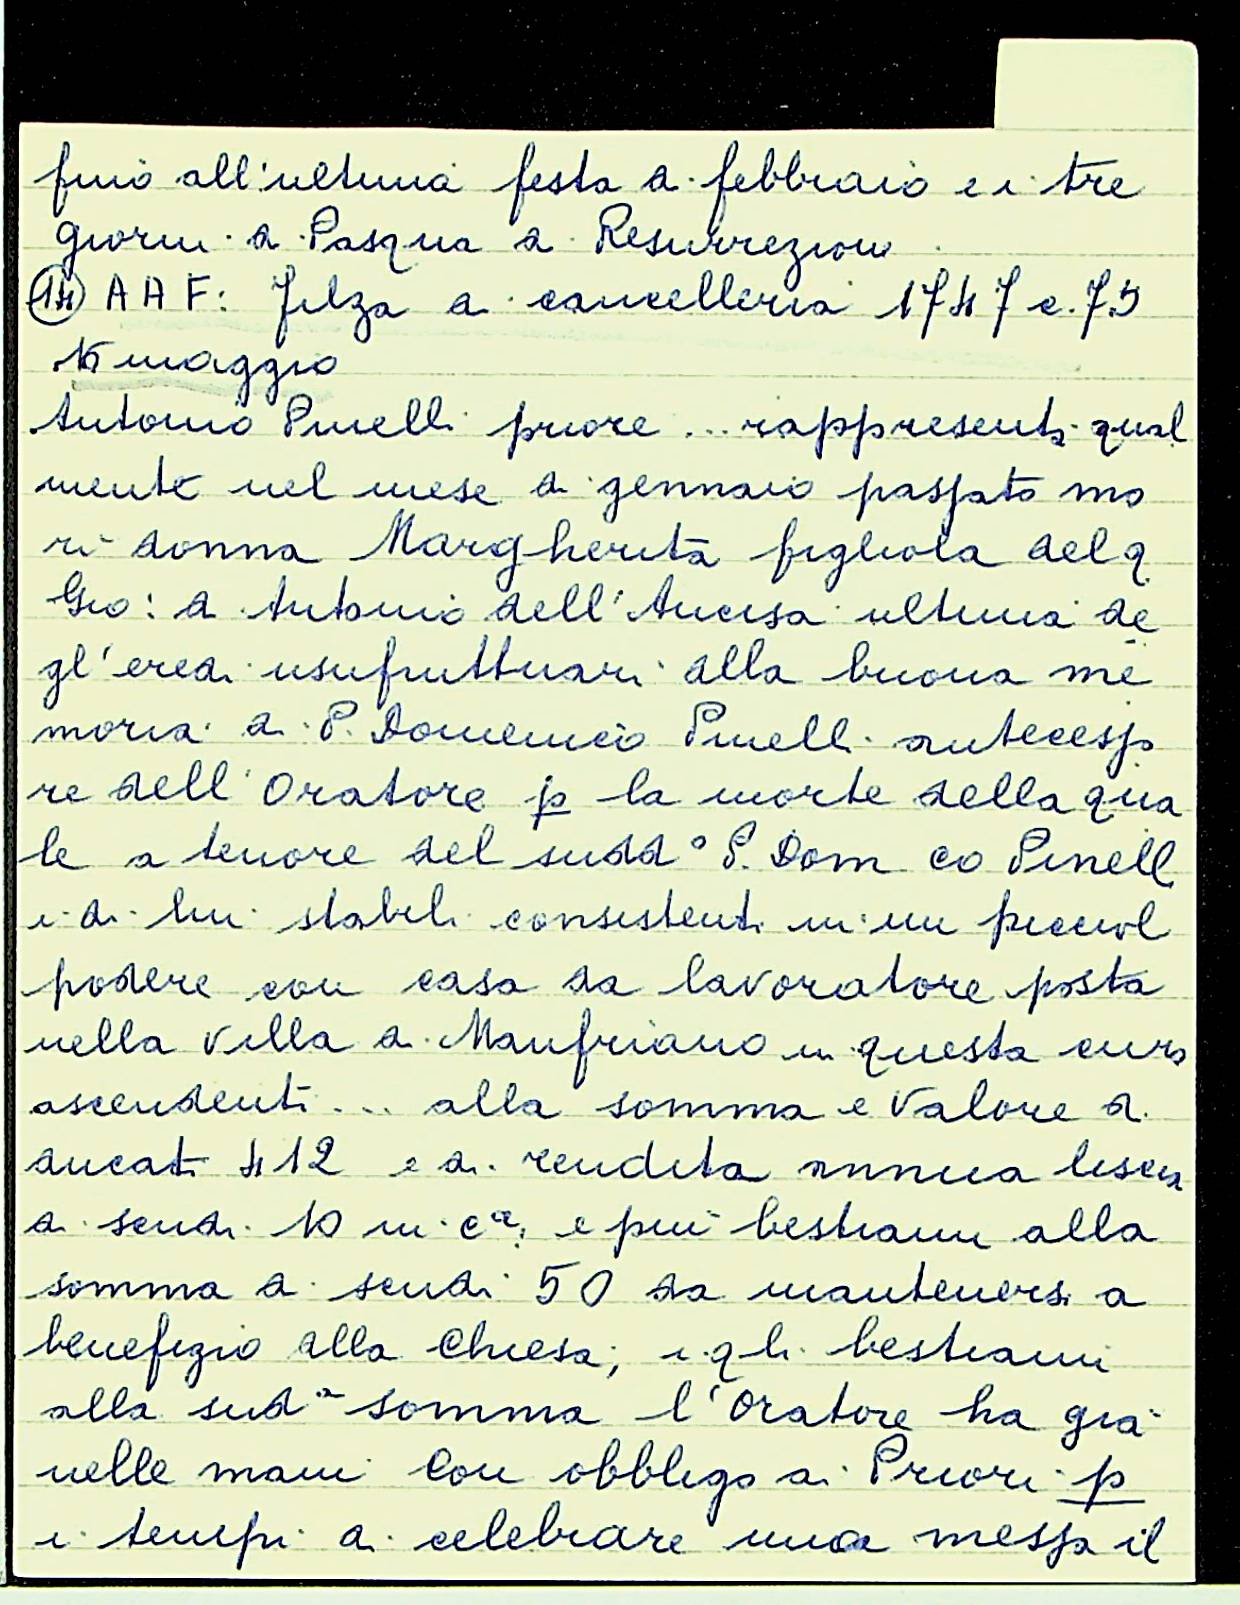 fino all'ultima festa di febbraio e i tre
giorni di Pasqua di Resurrezion
14 A A F: Filza di cancelleria 1747 c. 75
15 maggio
Antonio Pinelli priore ... rappresenta qual
mente nel mese di gennaio passato mo
ri donna Margherita figliola del q
Gio: di Antonio dell'Ancisa ultima de
gl'eredi usufruttuari alla buona me
moria di P. Domenico Pinelli antecesso
re dell'Oratore p la morte della qua
le a tenore del sudd° P. Domco Pinell
i di lui stabili consistenti in un picciol
podere con casa da lavoratore posta
nella villa di Manfriano in questa cura
ascendenti ... alla somma e valore di
ducati 412 e di rendita annua
di scudi 10 in ca, e più bestiami alla
somma di scudi 50 da mantenersi a
benefizio alla Chiesa; i qli bestiami
alla sudᵃ somma l'Oratore ha già
nelle mani con obbligo ai Priori p
i tempi di celebrare una messa il